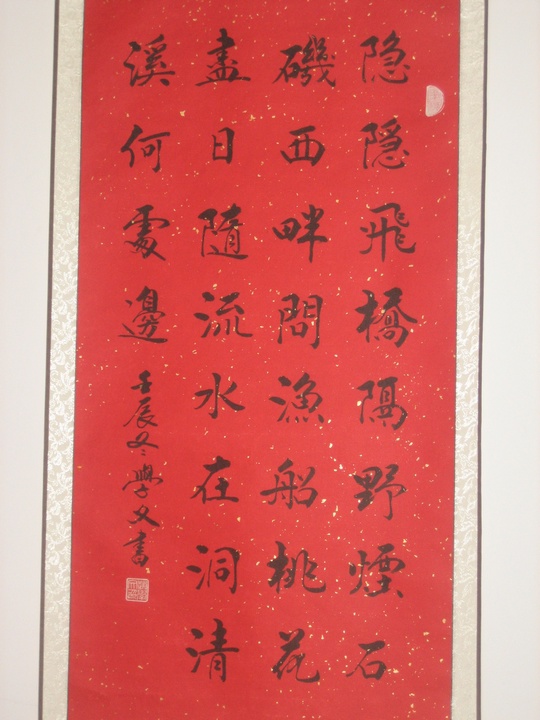 隱隱飛橋隔野煙石
磯西畔問漁船桃花
盡日隨流水在洞清
溪何處邊 壬辰冬學文書